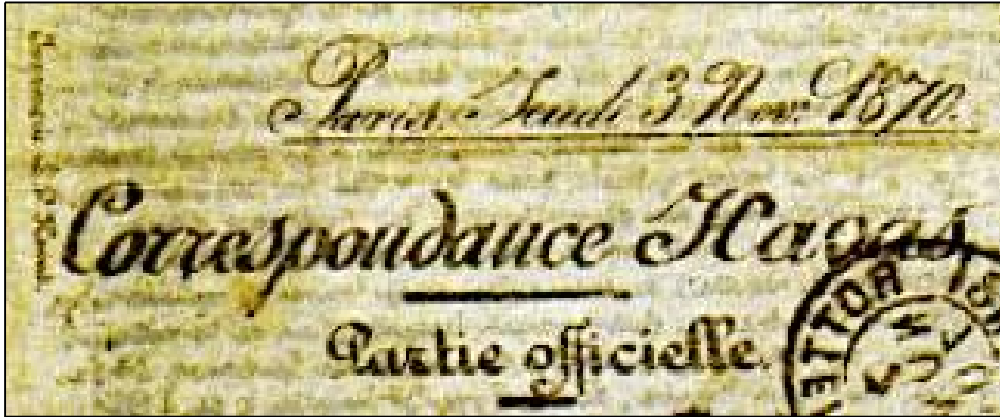 Paris, Jeudi 3 Nov. 1870.
Correspondance Havas
Partie officielle.